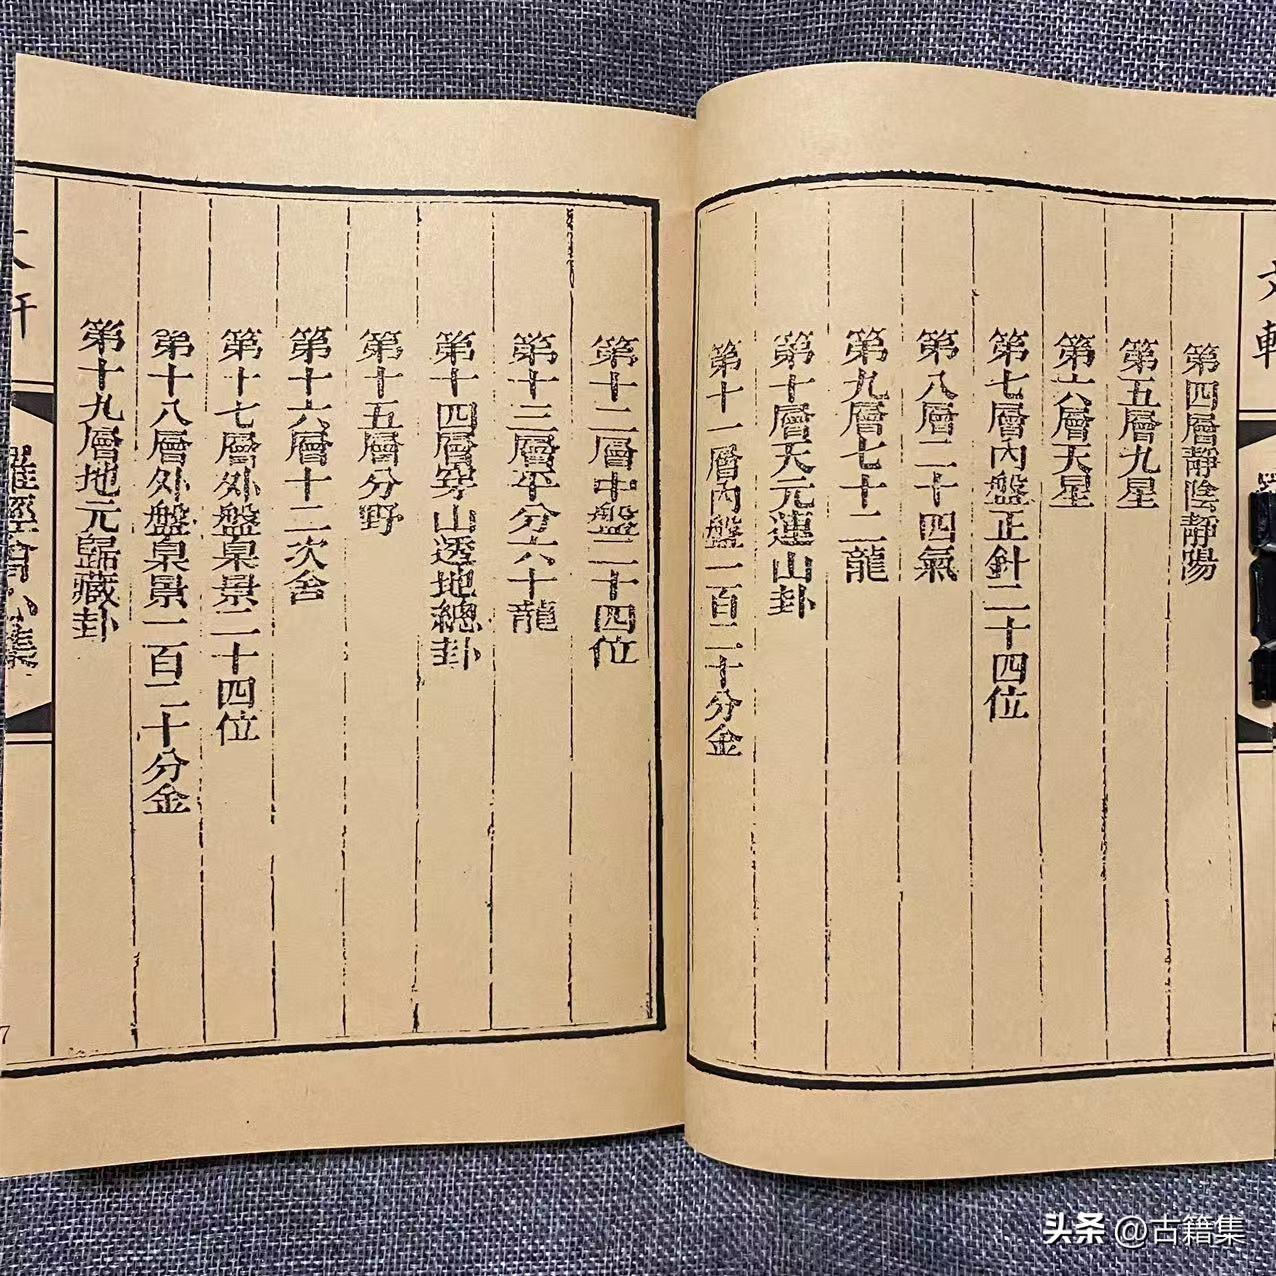 第四層靜陰靜陽
第五層九星
第六層天星
第七層內盤正針二十四位
第八層二十四氣
第九層七十二龍
第十層天元連山卦
第十一層內盤一百二十分金
第十二層中盤二十四位
第十三層平分六十龍
第十四層穿山透地總卦
第十五層分野
第十六層十二次舍
第十七層外盤臬景二十四位
第十八層外盤臬景一百二十分金
第十九層地元歸藏卦
7
头条 @古籍集